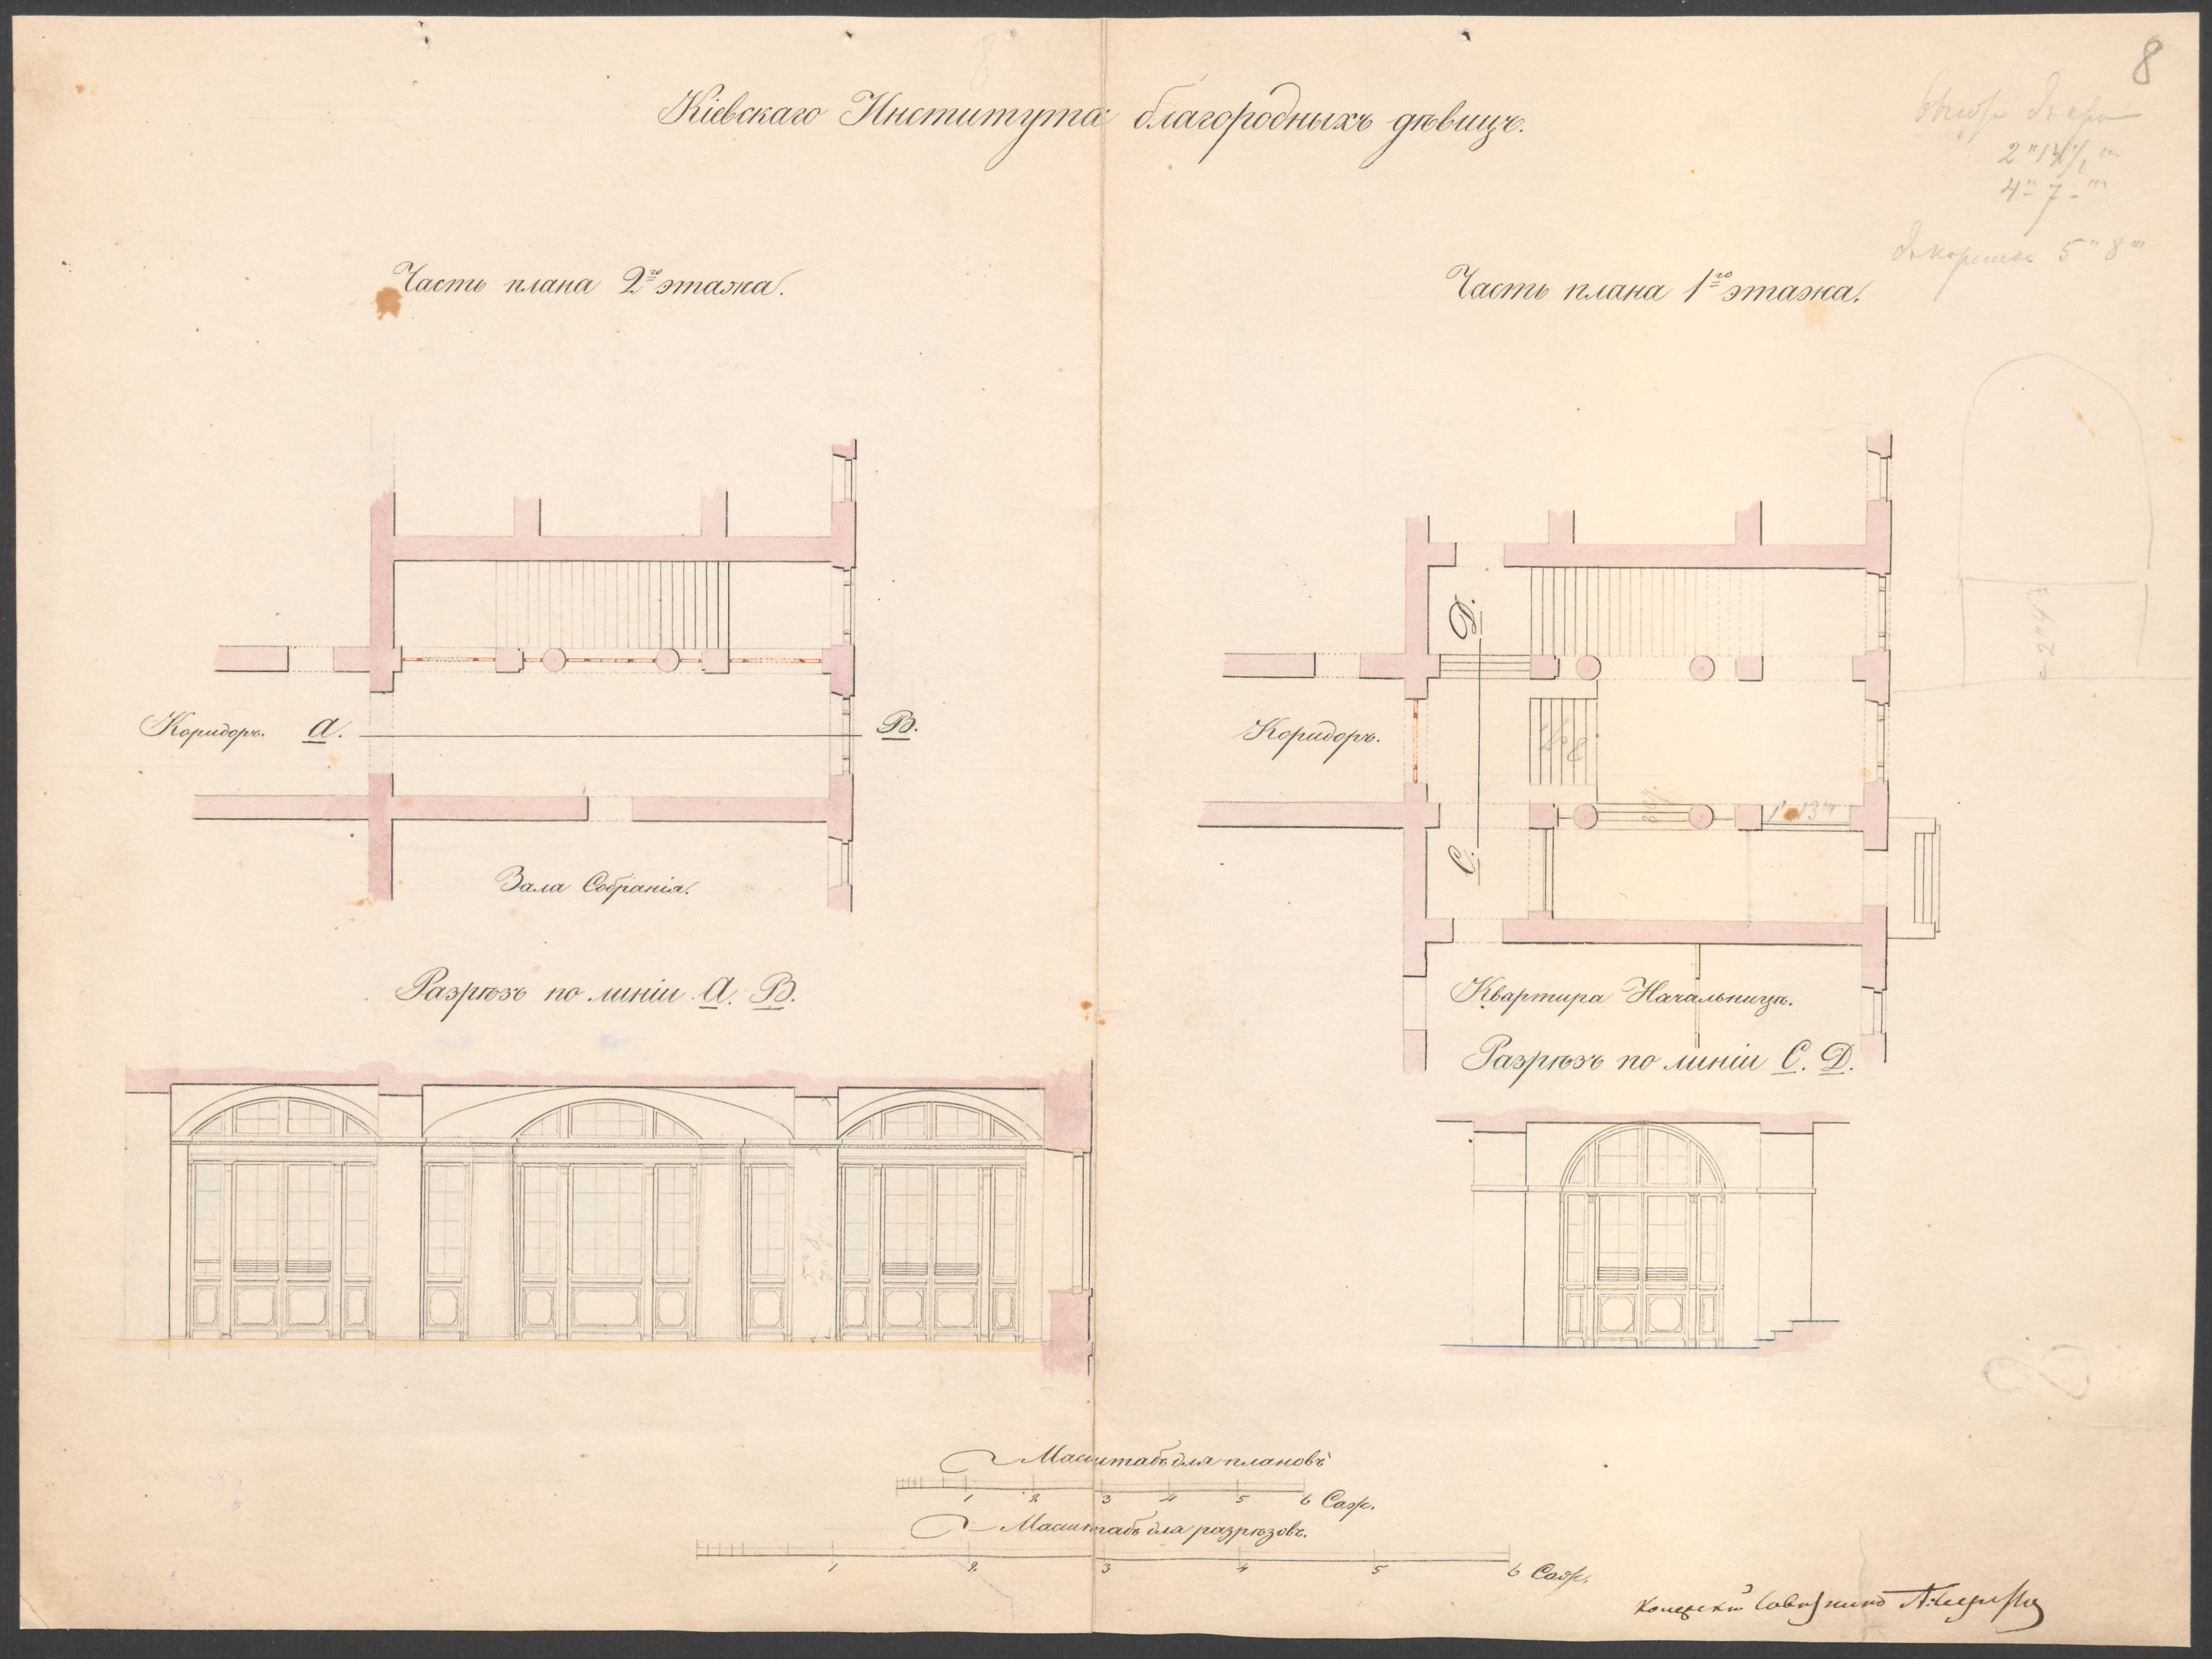 8
Кіевскаго Института благородныхъ дѣвицъ.
2" 14 1/2
4" 7
5" 8'''
Часть плана 2го этажа.
Часть плана 1го этажа.
Д.
Коридоръ. А.
В.
Коридоръ.
С.
Зала Собранія.
Разрѣзъ по линіи А. В.
Квартира Начальницы.
Разрѣзъ по линіи С. Д.
Масштабъ для плановъ
1 2. 3 4 5 6 Саж.
Масштабъ для разрѣзовъ.
1 2. 3 4 5 6 Саж.